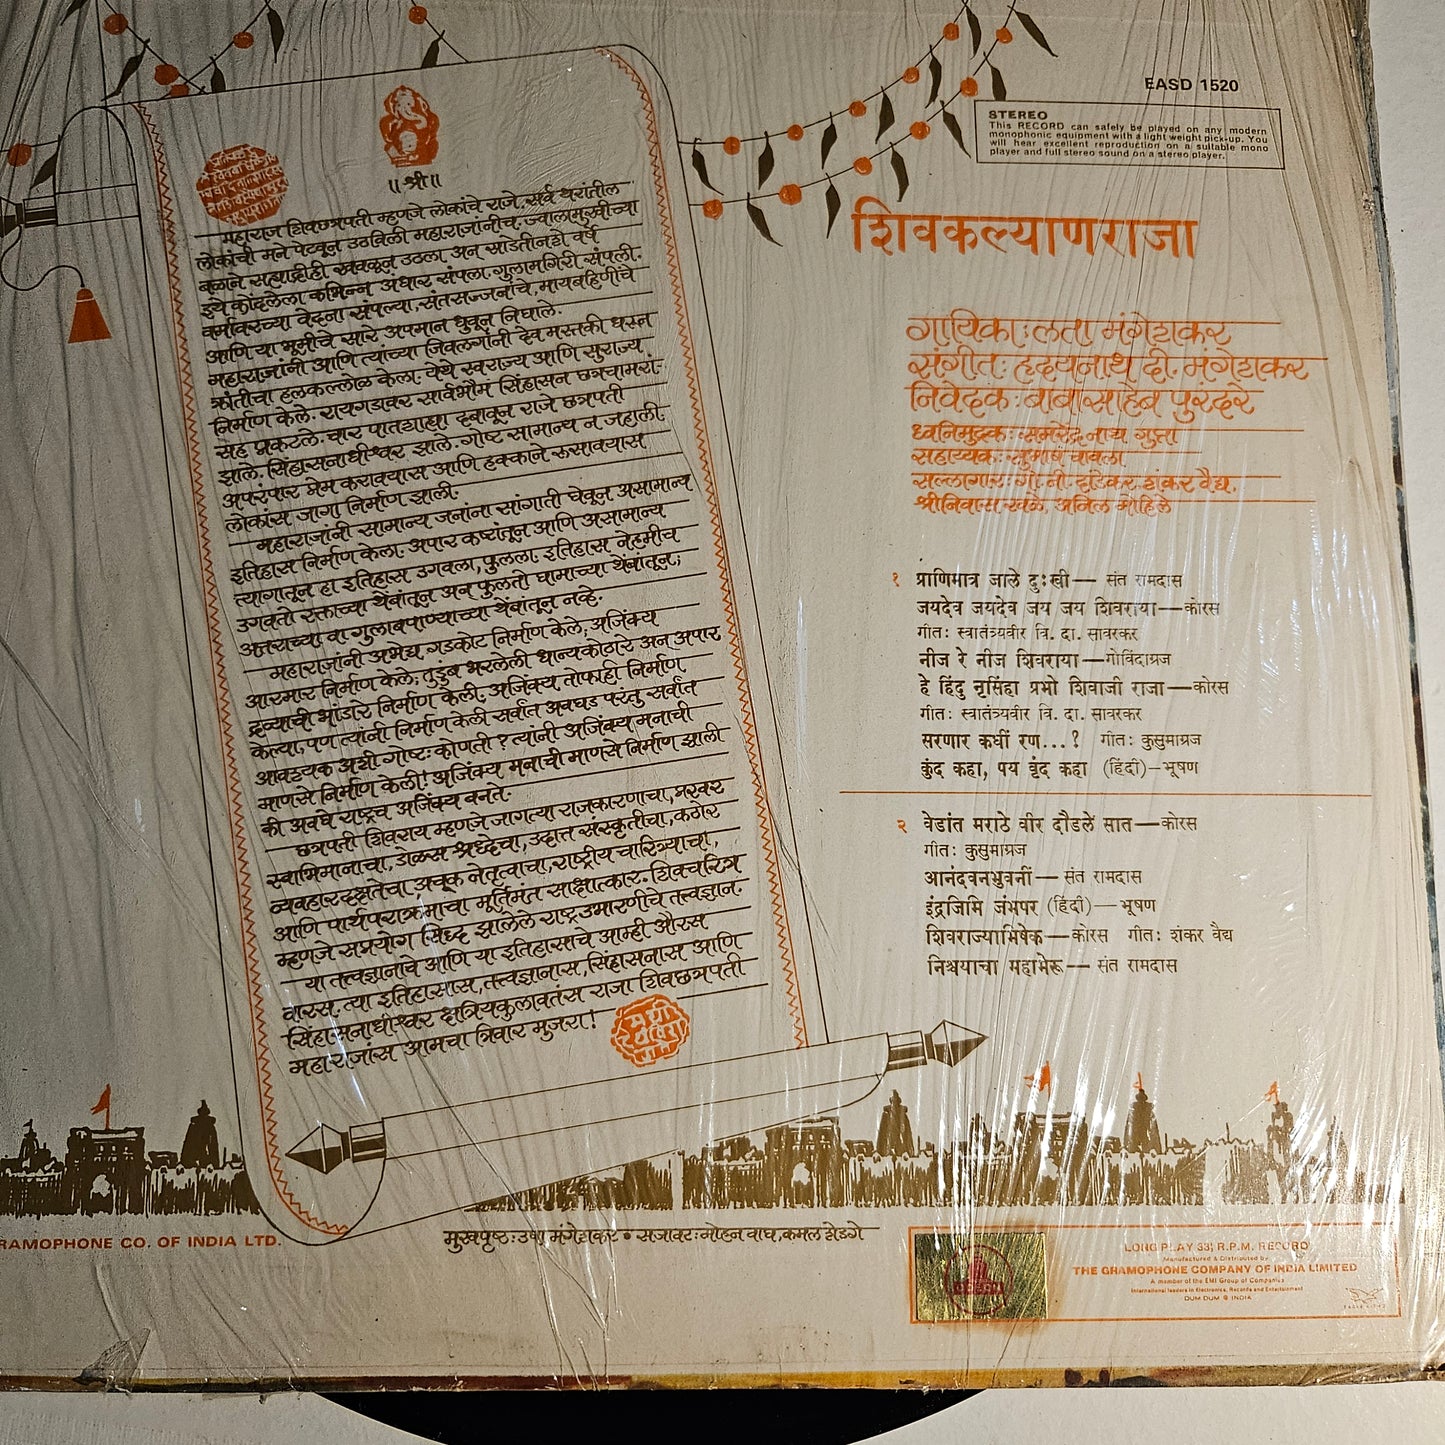 EASD 1520
STEREO
This RECORD can safely be played on any modern
monophonic equipment with a light weight pick-up. You
will hear excellent reproduction on a suitable mono
player and full stereo sound on a stereo player.
॥ श्री ॥
महाराज शिवछत्रपती म्हणजे लोकांचे राजे. सर्व थरांतील
लोकांची मने पेटवून उठविली महाराजांनीच. ज्वालामुखीच्या
बळाने सह्याद्रीही खवळून उठला अन् साडेतीनशे वर्षे
इथे कोंदलेला कभिन्न अंधार संपला. गुलामगिरी संपली.
वर्मावरच्या वेदना संपल्या, संतसज्जनांचे, मायबहिणींचे
आणि या भूमीचे सारे अपमान धुवून निघाले.
महाराजांनी आणि त्यांच्या जिवलगांनी देव मस्तकी धरून
क्रांतीचा हलकल्लोळ केला. येथे स्वराज्य आणि सुराज्य
निर्माण केले. रायगडावर सार्वभौम सिंहासन छत्रचामरां-
सह प्रकटले. चार पातशाह्या दबावून राजे छत्रपती
झाले. सिंहासनाधीश्वर झाले. गोष्ट सामान्य न जहाली.
अपरंपार प्रेम करावयास आणि हक्काने रुसावयास
लोकांस जागा निर्माण झाली.
महाराजांनी सामान्य जनांना सांगाती घेवून असामान्य
इतिहास निर्माण केला. अपार कष्टांतून आणि असामान्य
त्यागातून हा इतिहास उगवला, फुलला. इतिहास नेहमीच
उगवतो रक्ताच्या थेंबांतून अन् फुलतो घामाच्या थेंबांतून;
अत्तराच्या वा गुलाबपाण्याच्या थेंबांतून नव्हे.
महाराजांनी अभेद्य गडकोट निर्माण केले, अजिंक्य
आरमार निर्माण केले, तुडुंब भरलेली धान्यकोठारे अन् अपार
द्रव्याची भांडारे निर्माण केली. अजिंक्य तोफाही निर्माण
केल्या, पण त्यांनी निर्माण केली सर्वांत अवघड परंतु सर्वांत
आवश्यक अशी गोष्ट: कोणती? त्यांनी अजिंक्य मनाची
माणसे निर्माण केली! अजिंक्य मनाची माणसे निर्माण झाली
की अवघे राष्ट्रच अजिंक्य बनते.
छत्रपती शिवराय म्हणजे जागत्या राजकारणाचा, प्रखर
स्वाभिमानाचा, डोळस श्रध्देचा, उदात्त संस्कृतीचा, कठोर
व्यवहारदक्षतेचा अचूक नेतृत्वाचा, राष्ट्रीय चारित्र्याचा,
आणि पार्थपराक्रमाचा मूर्तिमंत साक्षात्कार. शिवचरित्र
म्हणजे सप्रयोग सिध्द झालेले राष्ट्रउभारणीचे तत्त्वज्ञान.
या तत्त्वज्ञानाचे आणि या इतिहासाचे आम्ही औरस
वारस. त्या इतिहासास, तत्त्वज्ञानास, सिंहासनास आणि
सिंहासनाधीश्वर क्षत्रियकुलावतंस राजा शिवछत्रपती
महाराजांस आमचा त्रिवार मुजरा!
शिवकल्याणराजा
गायिका: लता मंगेशकर
संगीत: हृदयनाथ दी. मंगेशकर
निवेदक: बाबासाहेब पुरंदरे
ध्वनिमुद्रक: समरेंद्रनाथ गुप्ता
सहाय्यक: सुभाष चावला
सल्लागार: गो. नी. दांडेकर, शंकर वैद्य,
श्रीनिवास खळे, अनिल मोहिले
१ प्राणिमात्र जाले दुःखी — संत रामदास
जयदेव जयदेव जय जय शिवराया — कोरस
गीत: स्वातंत्र्यवीर वि. दा. सावरकर
नीज रे नीज शिवराया — गोविंदाग्रज
हे हिंदु नृसिंहा प्रभो शिवाजी राजा — कोरस
गीत: स्वातंत्र्यवीर वि. दा. सावरकर
सरणार कधीं रण...? गीत: कुसुमाग्रज
कुंद कहा, पय वृंद कहा (हिंदी) — भूषण
२ वेडांत मराठे वीर दौडले सात — कोरस
गीत: कुसुमाग्रज
आनंदवनभुवनीं — संत रामदास
इंद्रजिमि जंभपर (हिंदी) — भूषण
शिवराज्याभिषेक — कोरस गीत: शंकर वैद्य
निश्चयाचा महामेरू — संत रामदास
RAMOPHONE CO. OF INDIA LTD.
मुखपृष्ठ: उषा मंगेशकर • सजावट: मोहन वाघ, कमल शेडगे
ODEON
LONG PLAY 33⅓ R.P.M. RECORD
Manufactured & Distributed by
THE GRAMOPHONE COMPANY OF INDIA LIMITED
A member of the EMI Group of Companies
International leaders in Electronics, Records and Entertainment
DUM DUM INDIA